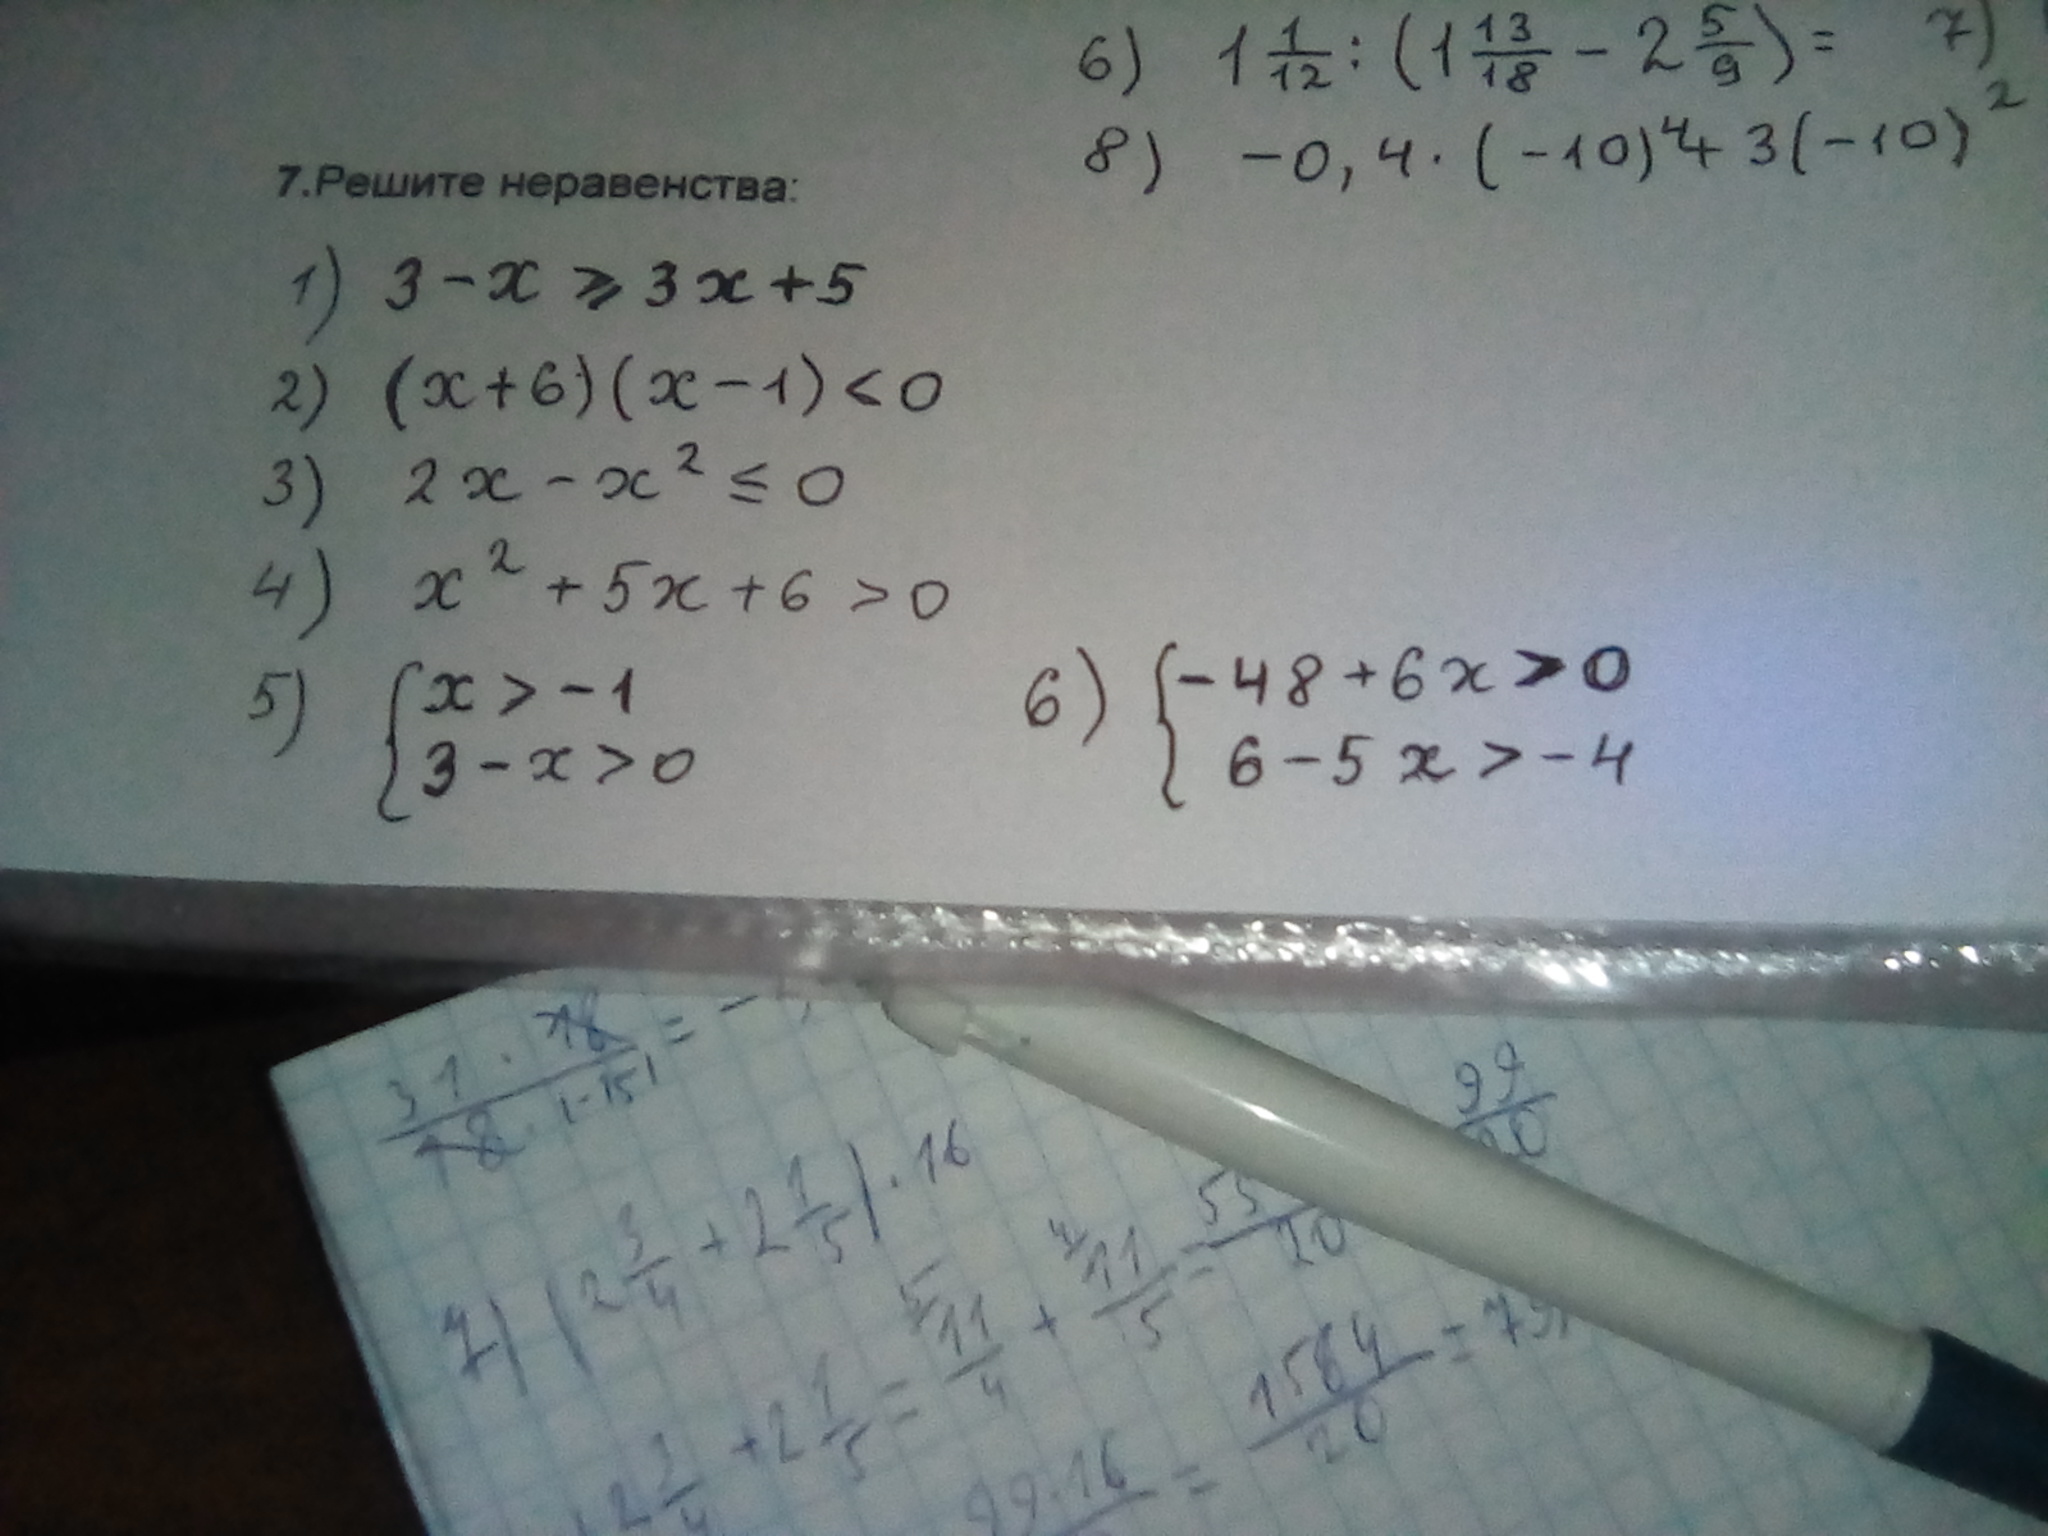 6) 1 1/12 : (1 13/18 - 2 5/9) = 7)
8) -0,4 · (-10)⁴ + 3(-10)²
7.Решите неравенства:
1) 3 - x ⩾ 3x + 5
2) (x + 6)(x - 1) < 0
3) 2x - x² ≤ 0
4) x² + 5x + 6 > 0
5) { x > -1
3 - x > 0
6) { -48 + 6x > 0
6 - 5x > -4
31 · 18 / 18 · (-15) = -
7) (2 3/4 + 2 1/5) · 16
2 3/4 + 2 1/5 = 11/4 + 11/5 = 55 / 20
99 · 16 = 1584/20 = 79,